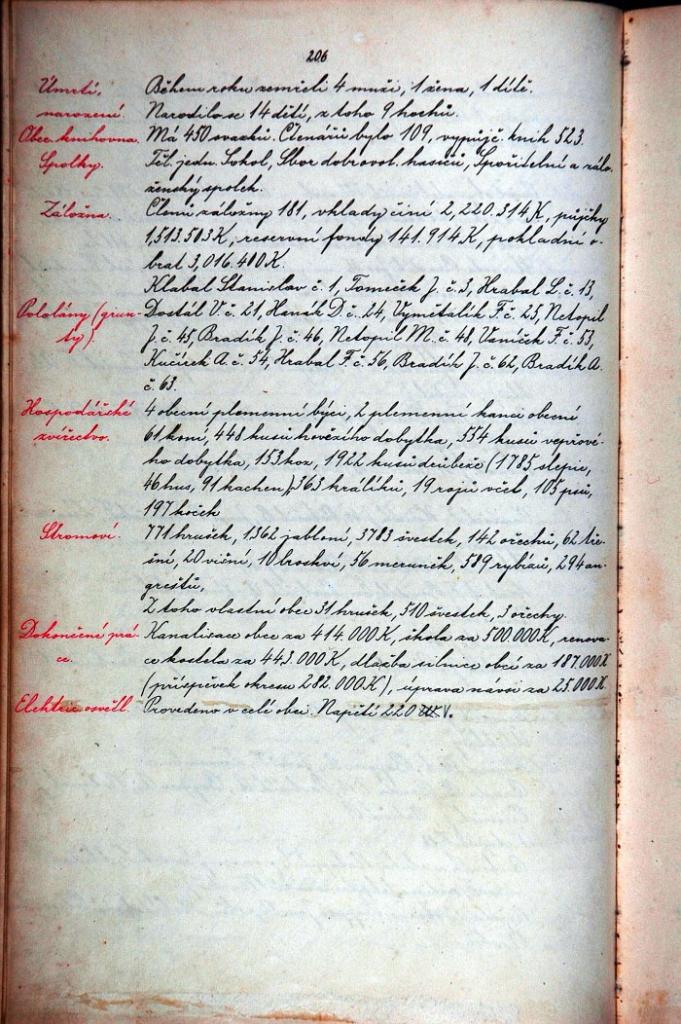 206
Úmrtí, Během roku zemřeli 4 muži, 1 žena, 1 dítě.
narození. Narodilo se 14 dětí, z toho 9 hochů.
Obec. knihovna. Má 450 svazků. Čtenářů bylo 109, vypůjč. knih 523.
Spolky. Těl. jedn. Sokol, Sbor dobrovol. hasičů, Spořitelní a zálo-
ženský spolek.
Záložna. Členů záložny 181, vklady činí 2,220.314 K, půjčky
1,513.503 K, reservní fondy 141.914 K, pokladní o-
brat 3,016.480 K.
Klabal Stanislav č. 1, Tomeček J. č. 3, Hrabal L. č. 13,
Pololány (grun- Dostál V. č. 21, Hanák D. č. 24, Vymětalík F. č. 25, Netopil
ty). J. č. 45, Bradík J. č. 46, Netopil M. č. 48, Vaníček F. č. 53,
Kučírek A. č. 54, Hrabal F. č. 56, Bradík J. č. 62, Bradík A.
č. 63.
Hospodářské 4 obecní plemenní býci, 2 plemenní kanci obecní
zvířectvo. 61 koní, 448 kusů hovězího dobytka, 554 kusů vepřové-
ho dobytka, 153 koz, 1922 kusů drůbeže (1785 slepic,
46 hus, 91 kachen), 363 králíků, 19 rojů včel, 105 psů,
197 koček
Stromoví. 771 hrušek, 1362 jabloní, 3783 švestek, 142 ořechů, 62 tře-
šní, 20 višní, 10 broskví, 56 meruněk, 589 rybízů, 294 an-
greštů,
Z toho vlastní obec 31 hrušek, 510 švestek, 3 ořechy.
Dokončené prá- Kanalisace obce za 414.000 K, škola za 500.000 K, renova-
ce. ce kostela za 443.000 K, dlažba silnice obcí za 187.000 K
(příspěvek okresu 282.000 K), úprava návsi za 25.000 K.
Elektric. osvětl. Provedeno v celé obci. Napětí 220 V.